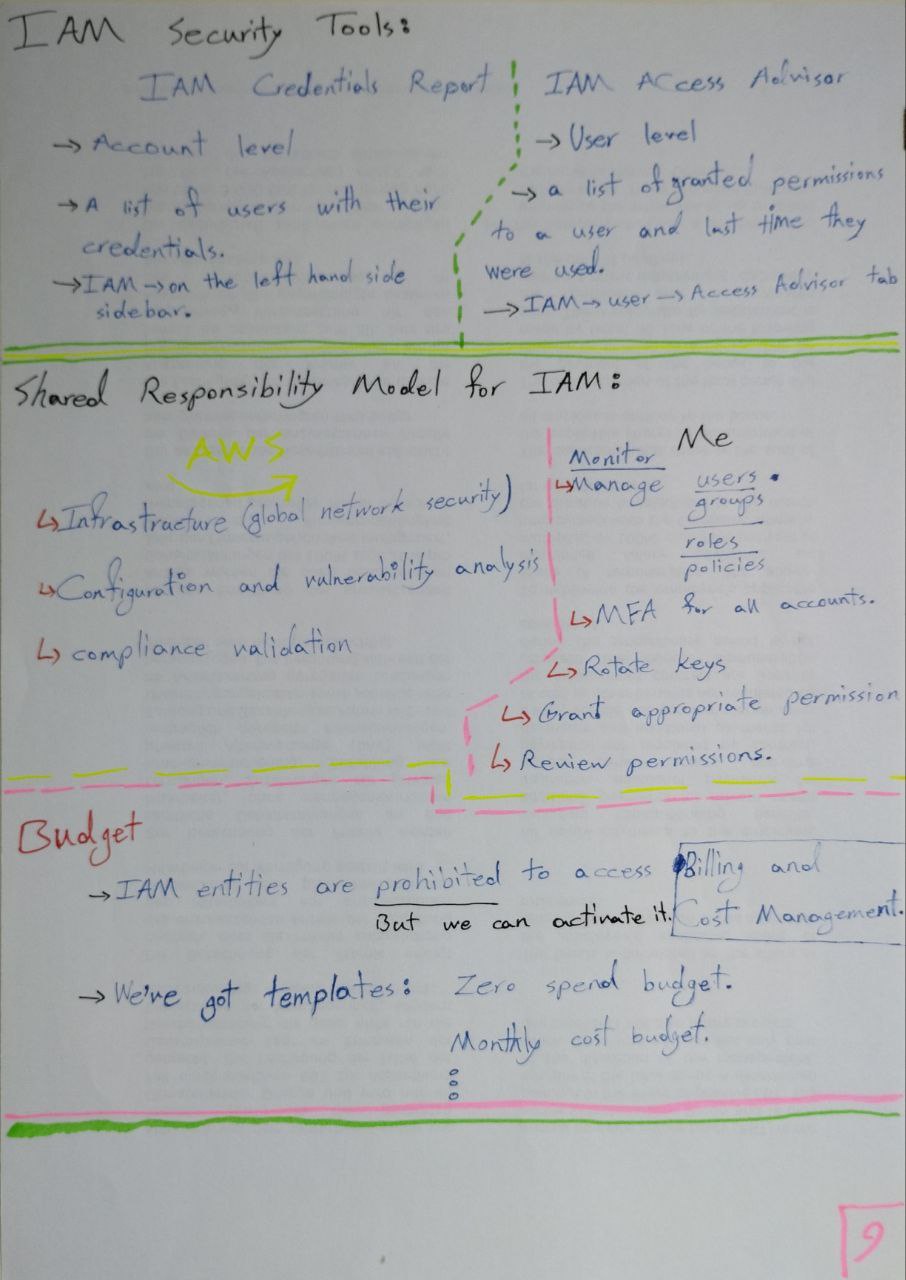 IAM Security Tools:
IAM Credentials Report
→ Account level
→ A list of users with their
credentials.
→ IAM → on the left hand side
sidebar.
IAM Access Advisor
→ User level
→ a list of granted permissions
to a user and last time they
were used.
→ IAM → user → Access Advisor tab
Shared Responsibility Model for IAM:
AWS
↳ Infrastructure (global network security)
↳ Configuration and vulnerability analysis
↳ compliance validation
Me
Monitor
↳ Manage users.
groups
roles
policies
↳ MFA for all accounts.
↳ Rotate keys
↳ Grant appropriate permission
↳ Review permissions.
Budget
→ IAM entities are prohibited to access Billing and
But we can activate it. Cost Management.
→ We've got templates: Zero spend budget.
Monthly cost budget.
9